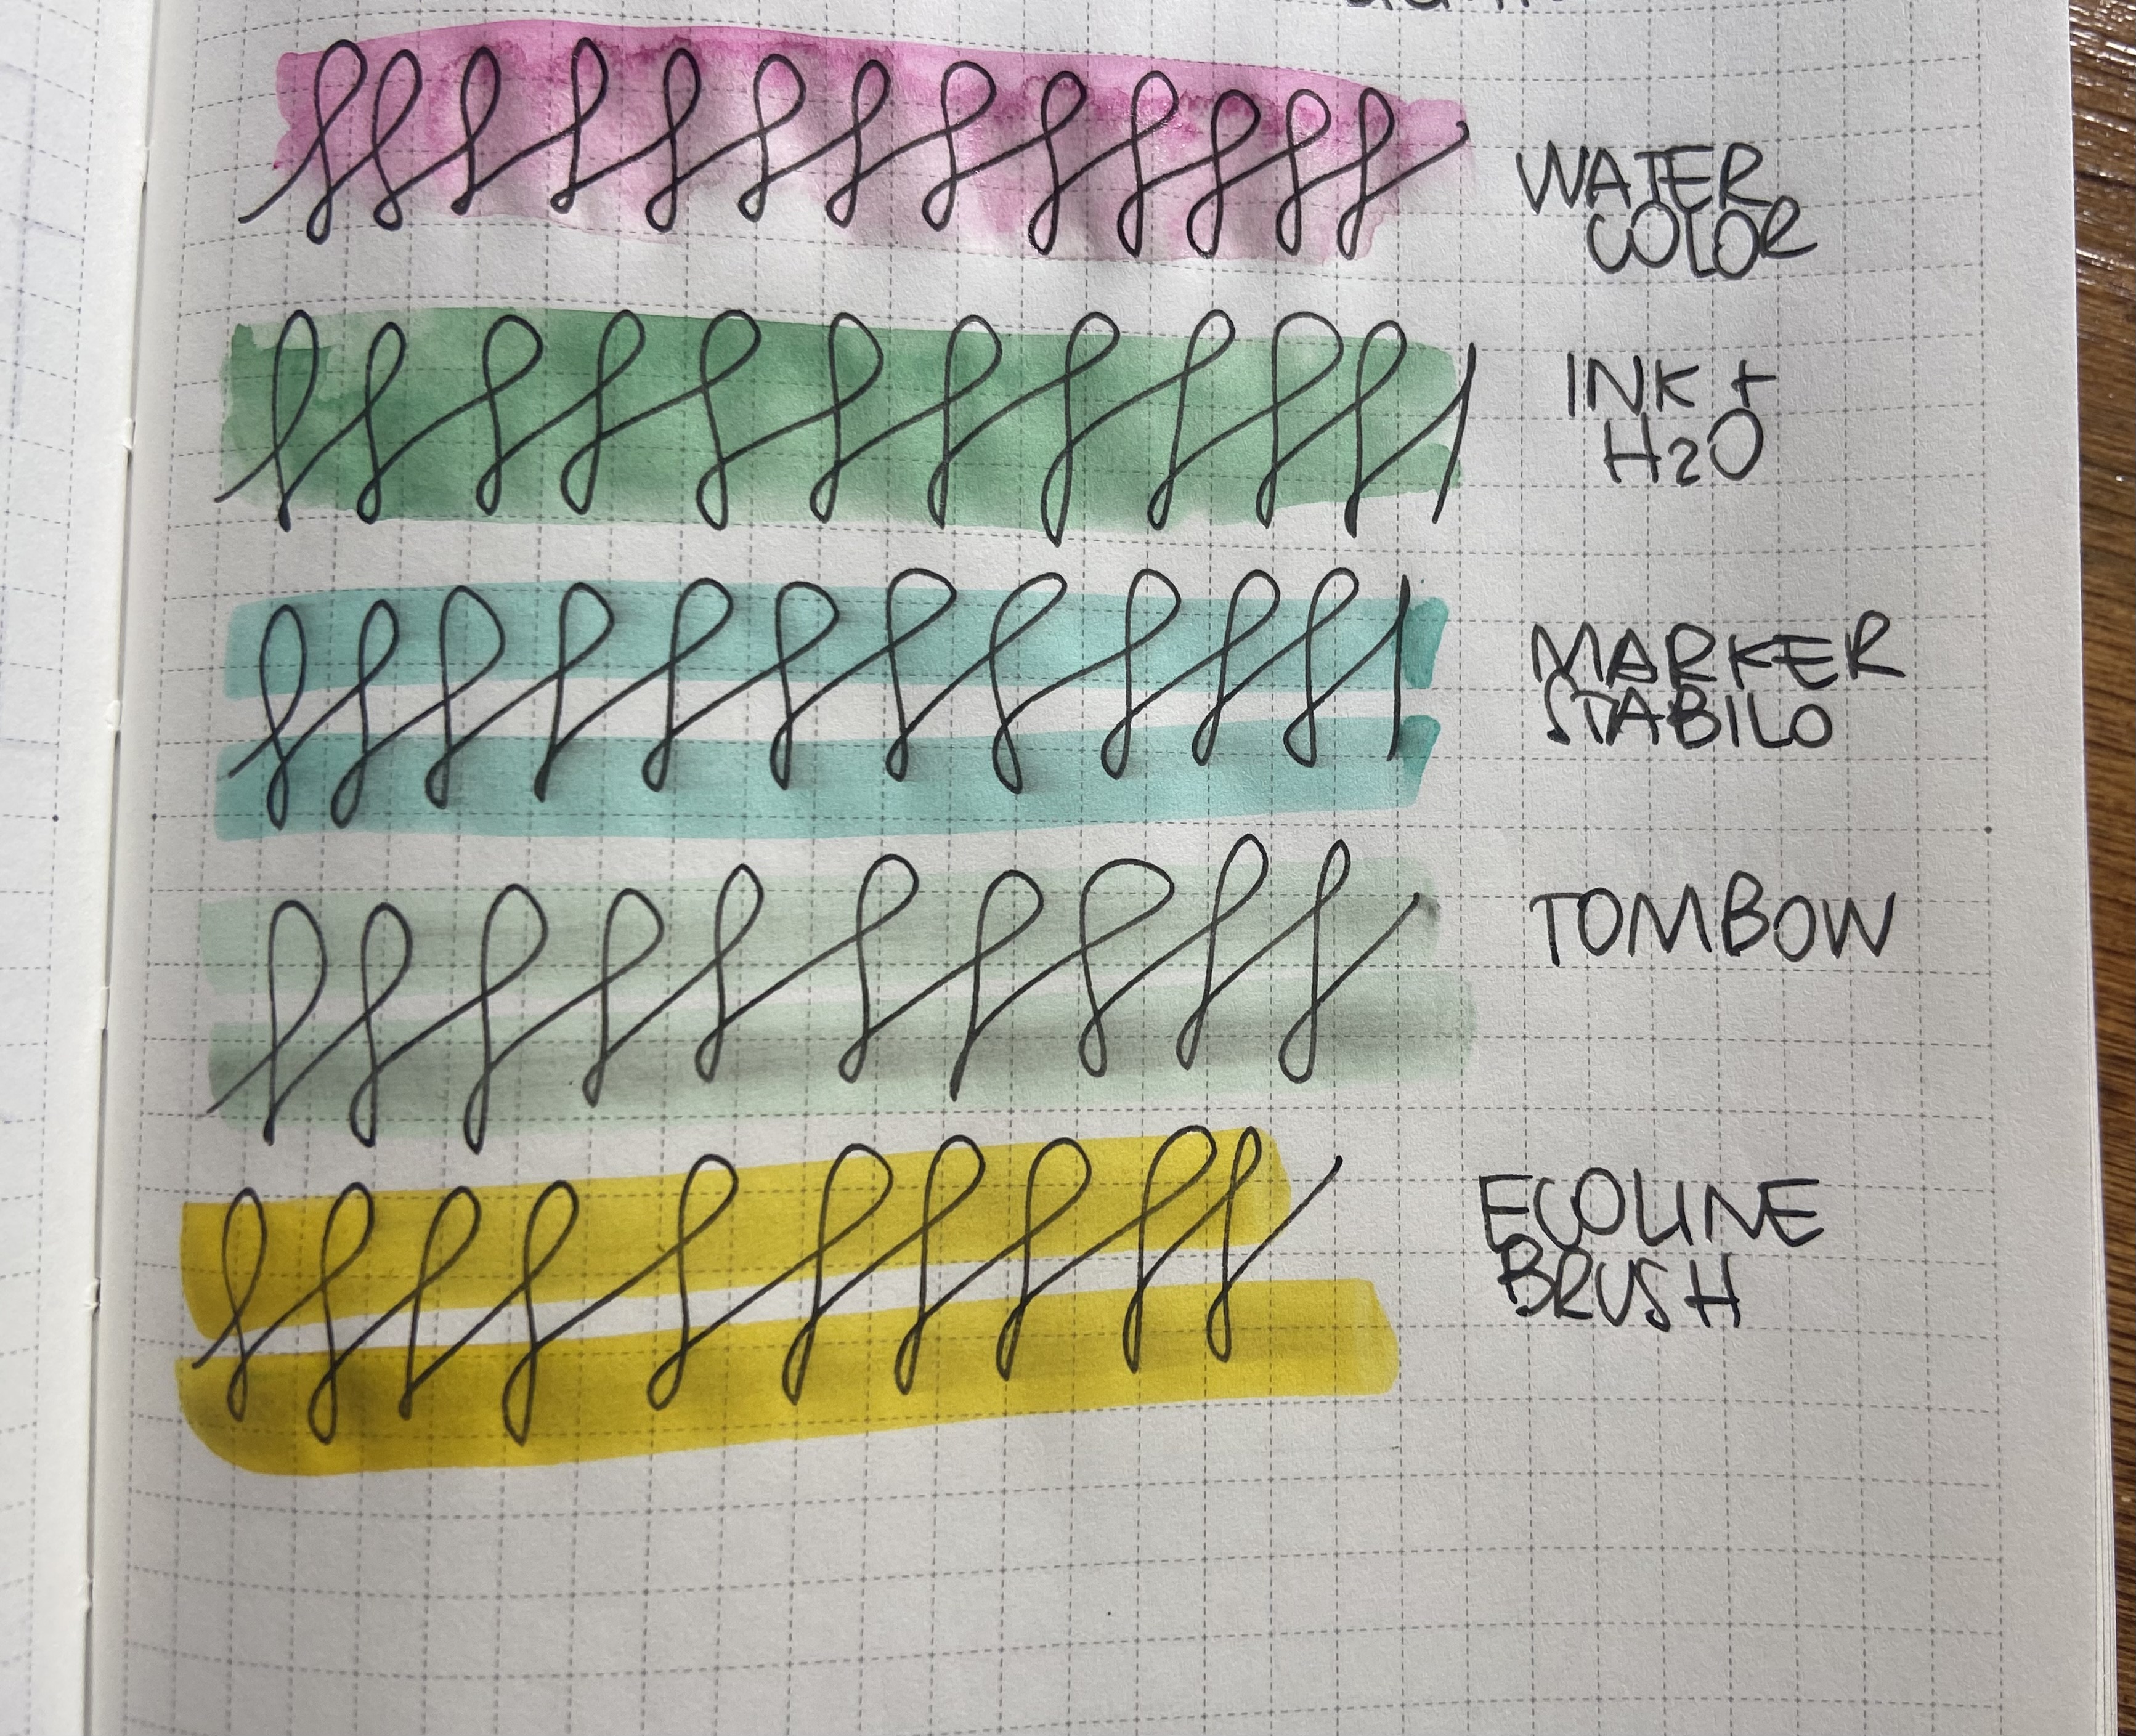 WATER
COLOR
INK +
H2O
MARKER
STABILO
TOMBOW
ECOLINE
BRUSH